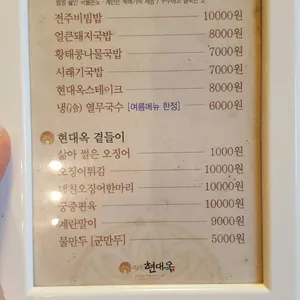 전주비빔밥 10000원
얼큰돼지국밥 8000원
황태콩나물국밥 7000원
시래기국밥 7000원
현대옥스테이크 8000원
냉(冷) 열무국수 [여름메뉴 한정] 6000원
현대옥 곁들이
삶아 썰은 오징어 1000원
오징어튀김 10000원
대친오징어한마리 10000원
궁중편육 10000원
계란말이 9000원
물만두 [군만두] 5000원
현대옥